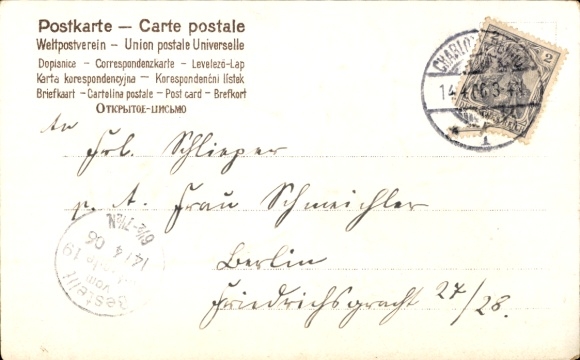 Postkarte – Carte postale
Weltpostverein – Union postale Universelle
Dopisnice – Correspondenzkarte – Levelező-Lap
Karta korespondencyjna – Korespondenční lístek
Briefkaart – Cartolina postale – Post card – Brefkort
Открытое-письмо
2
14.4.06.
1
An
Frl. Schlieper
p. A. Frau Schmeichler
Berlin
Friedrichsgracht 27/28.
6½-7½N.
14/4 06
gestellt